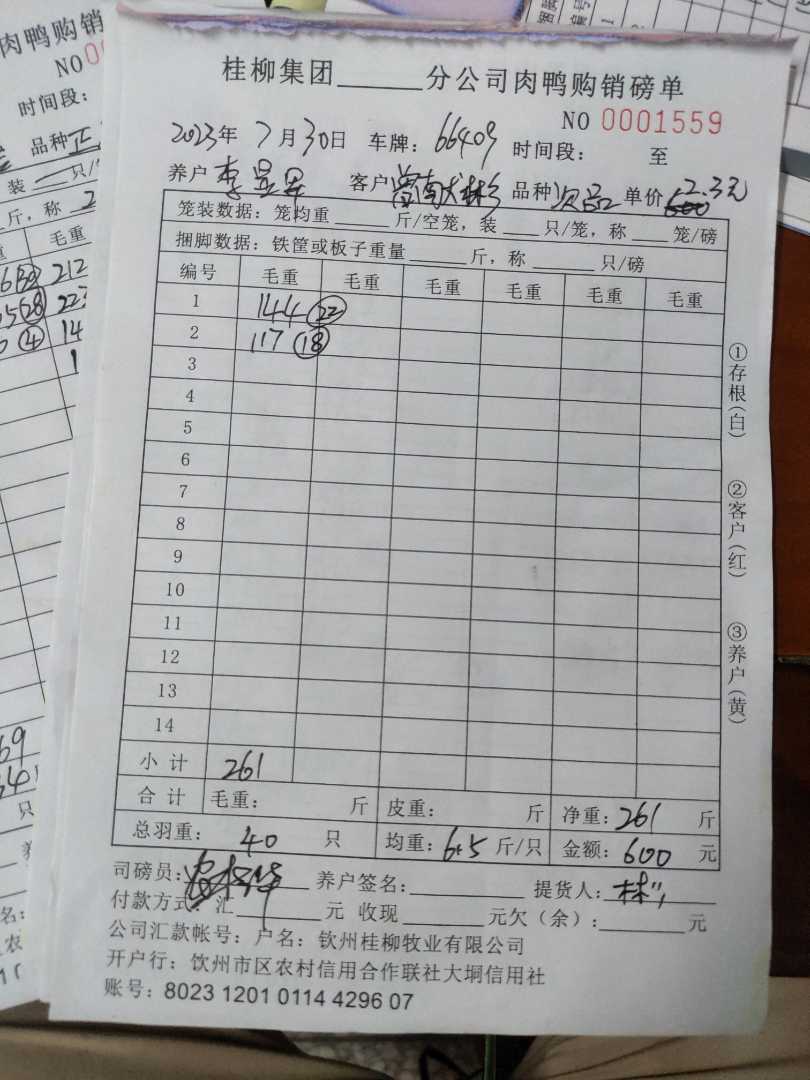 桂柳集团______分公司肉鸭购销磅单
NO 0001559
2023年7月30日 车牌：66409 时间段： 至
养户 李 客户 品种 次品 单价 2.3元
笼装数据：笼均重____斤/空笼，装___只/笼，称___笼/磅
捆脚数据：铁筐或板子重量_____斤，称_____只/磅
编号 毛重 毛重 毛重 毛重 毛重 毛重
1 144 22
2 117 18
3
4
5
6
7
8
9
10
11
12
13
14
小计 261
合计 毛重： 斤 皮重： 斤 净重：261 斤
总羽重：40 只 均重：6.5 斤/只 金额：600 元
司磅员： 养户签名：________ 提货人：林
付款方式：汇______元 收现______元欠（余）：______元
公司汇款帐号：户名：钦州桂柳牧业有限公司
开户行：饮州市区农村信用合作联社大垌信用社
账号：8023 1201 0114 4296 07
①存根（白）
②客户（红）
③养户（黄）
肉鸭购销
NO 0
时间段：
品种 正
装 只/
斤，称 2
毛重
212
28 22
4 14
1
69
只
名：